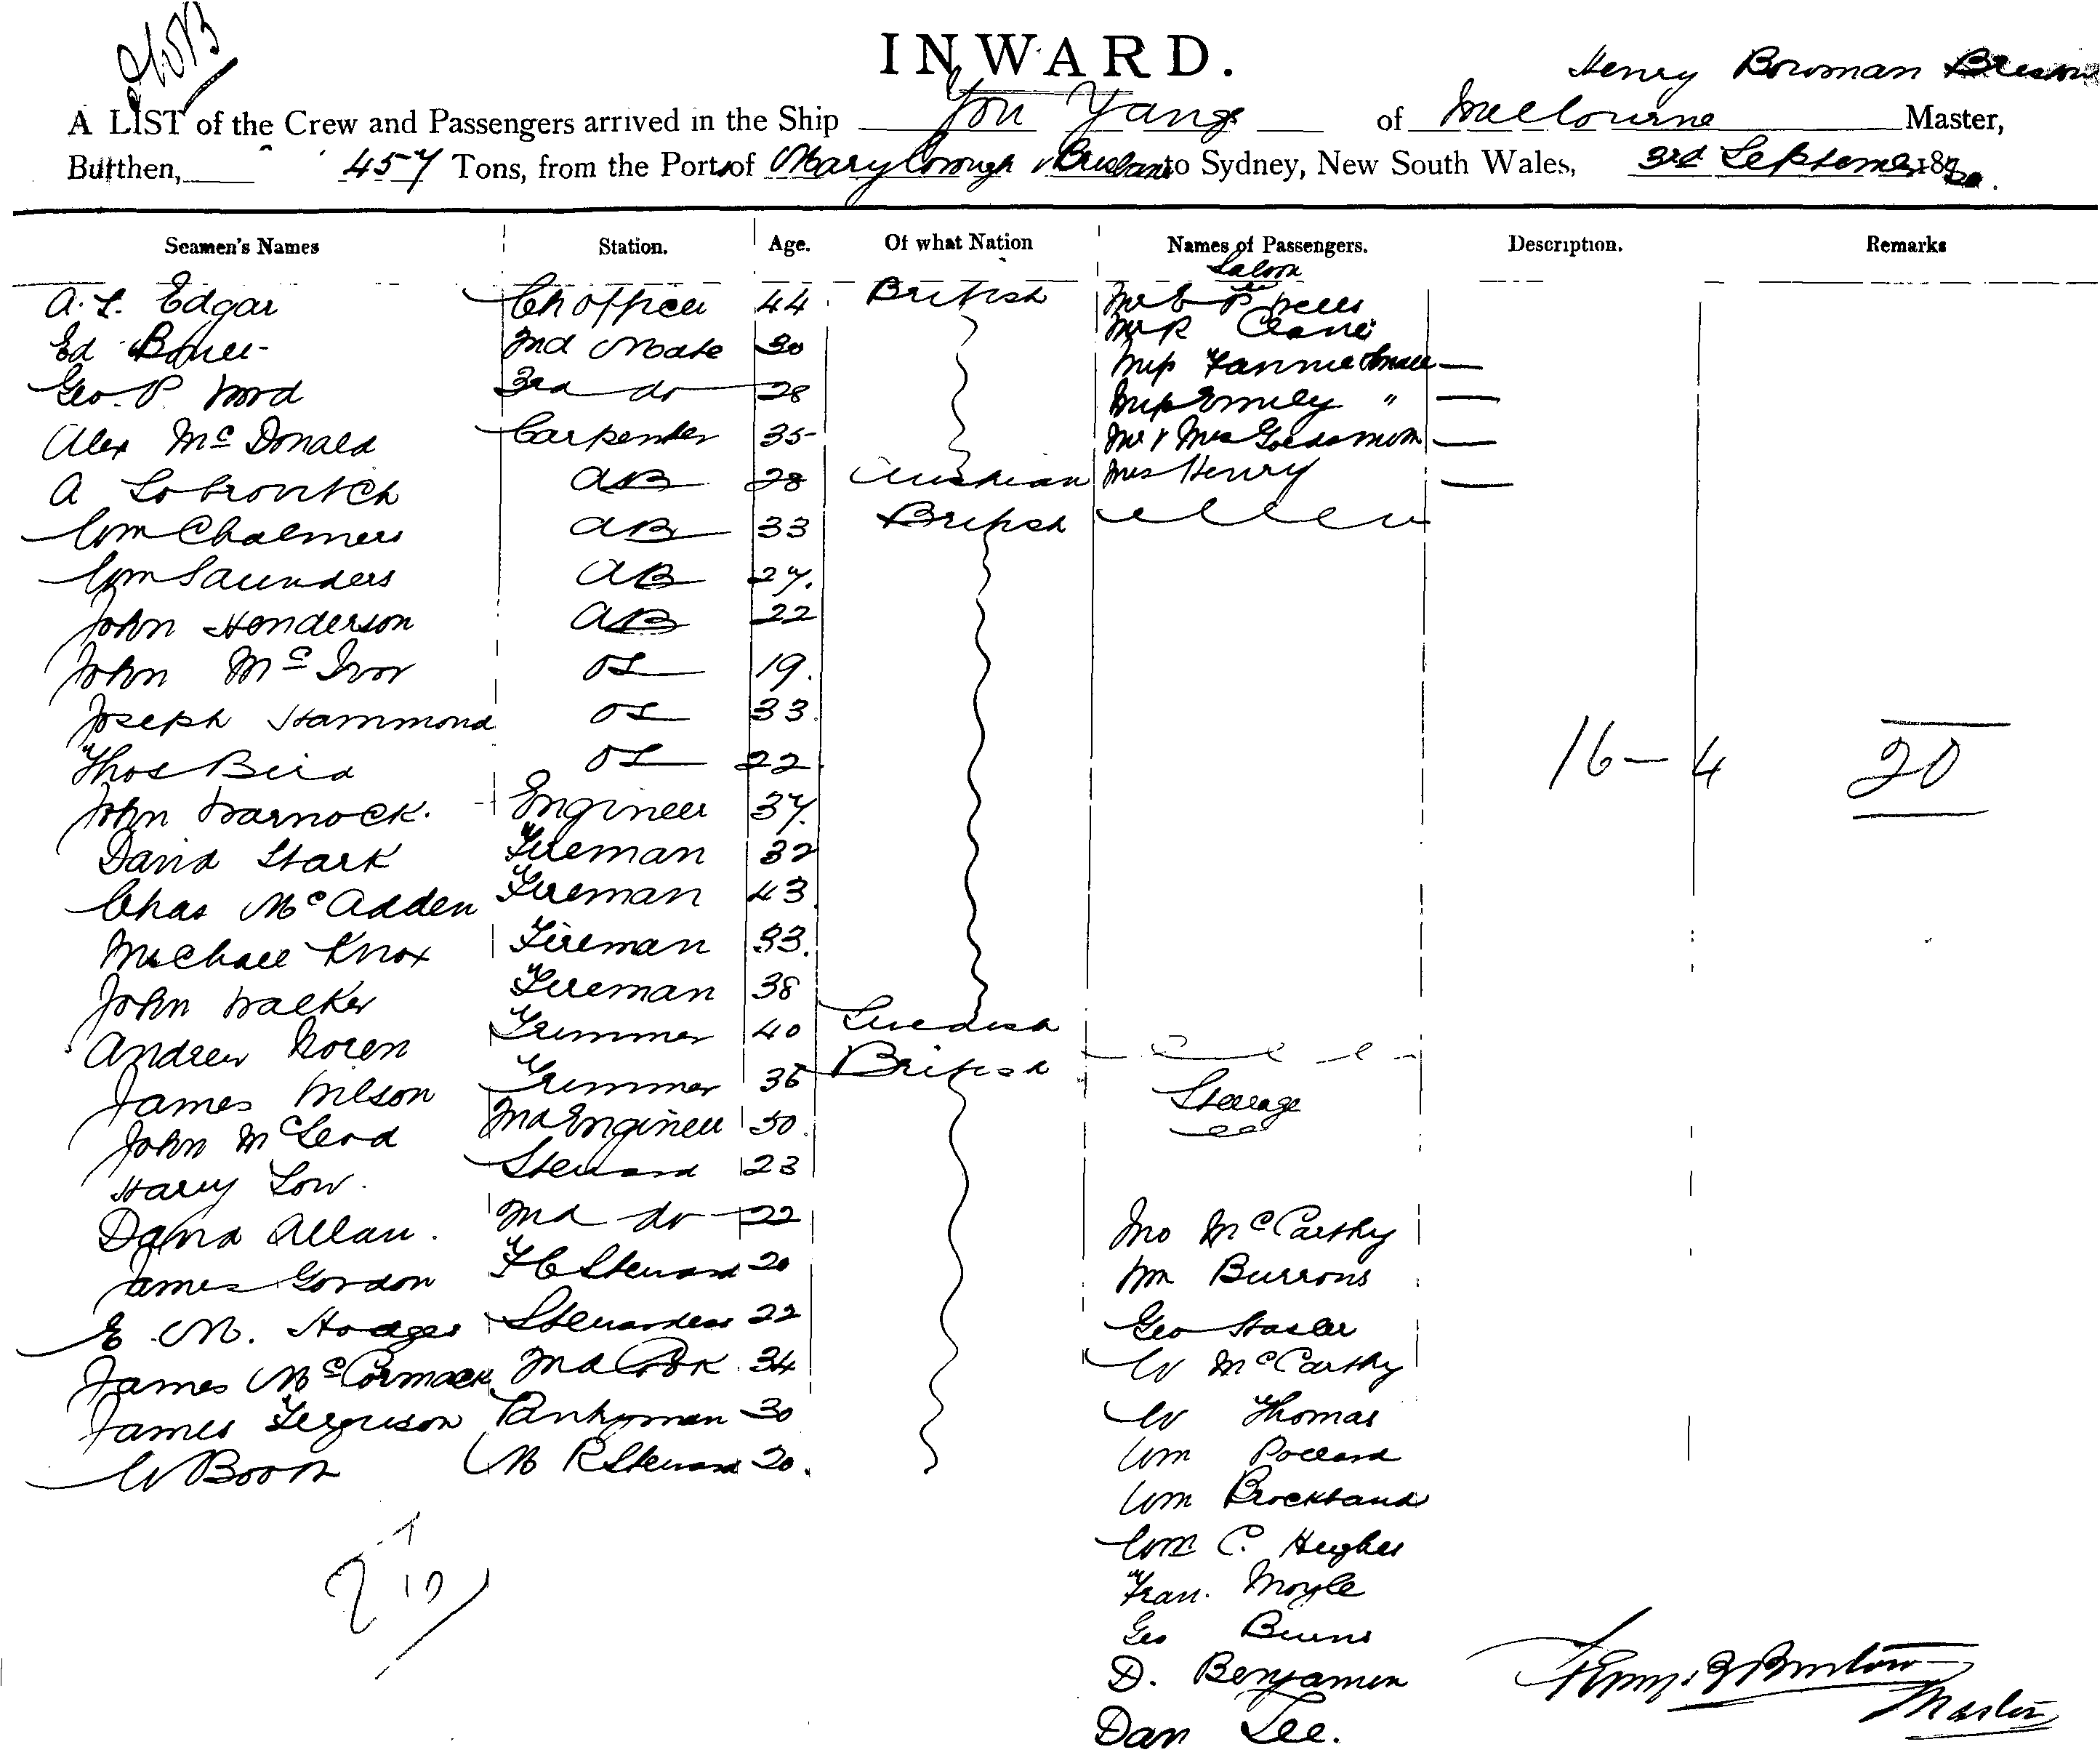 INWARD.
Henry Bowman
A LIST of the Crew and Passengers arrived in the Ship You Yangs of Melbourne Master,
Burthen, 457 Tons, from the Port of Maryborough & Brisbane to Sydney, New South Wales, 3rd September 18
Seamen's Names Station. Age. Of what Nation Names of Passengers. Description. Remarks
Saloon
A. L. Edgar Ch Officer 44 British
Ed 2nd Mate 30 Mr R
Geo. P. Word 3rd do 28 Miss Fannie
Alex McDonald Carpenter 35 Miss Emily "
A Lobrovitch AB 28 Austrian Mr & Mrs Goldsmith
Wm Chalmers AB 33 British Mrs Henry
Wm Saunders AB 27.
John Henderson AB 22
John McIvor OS 19.
Joseph Hammond OS 33.
Thos Bird OS 22. 16 — 4 20
John Warnock. Engineer 37.
David Stark Fireman 32
Chas McAdden Fireman 43
Michael Knox Fireman 33.
John Walker Fireman 38
Andrew Noren Trimmer 40 Swedish
James Wilson Trimmer 36 British
Steerage
John McLeod 2nd Engineer 30.
Harry Low. Steward 23
David Allan. 2nd do 22 Jno McCarthy
James Gordon F C Steward 20 Wm Burrows
E. M. Hodges Stewardess 22 Geo
James McCormack 2nd Cook 34 W McCarthy
James Ferguson Pantryman 30 W Thomas
W Booth M R Steward 20. Wm Pollard
Wm Brockband
Wm C. Hughes
Fran. Moyle
Geo Burns
D. Benjamen
Dan Lee.
Master